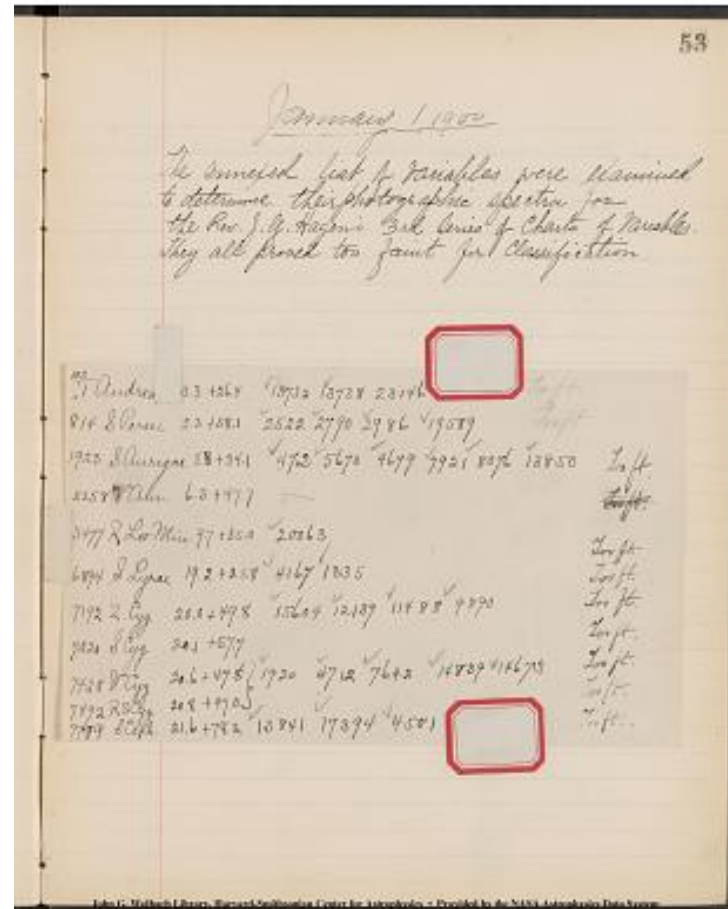 53
January 1, 1900
The annexed list of Variables were examined
to determine their photographic spectra for
the Rev. J. G. Hagen's 3rd Series of Charts of Variables.
They all proved too faint for Classification
T Androm 0.3 +26.4 13732 13728 23146 Too ft.
814 S Persei 2.3 +58.1 2522 2790 3986 19589 Too ft.
1923 S Aurigae 5.8 +34.1 472 5670 4679 7921 8076 13850 Too ft.
2258 Aur 6.3 +47.7 Too ft.
3477 R Leo Min 9.7 +35.0 20263 Too ft.
6894 S Lyrae 19.2 +25.8 4167 1335 Too ft.
7192 Z Cyg 20.0 +49.8 15604 12139 11488 9890 Too ft.
S Cyg 20.1 +57.7 Too ft.
7428 V Cyg 20.6 +47.8 1920 4712 7642 14839 14673 Too ft.
7492 RS Cyg 20.8 +47.0 Too ft.
7779 S Ceph 21.6 +78.2 13841 17394 4501 Too ft.
John G. Wolbach Library, Harvard-Smithsonian Center for Astrophysics • Provided by the NASA Astrophysics Data System